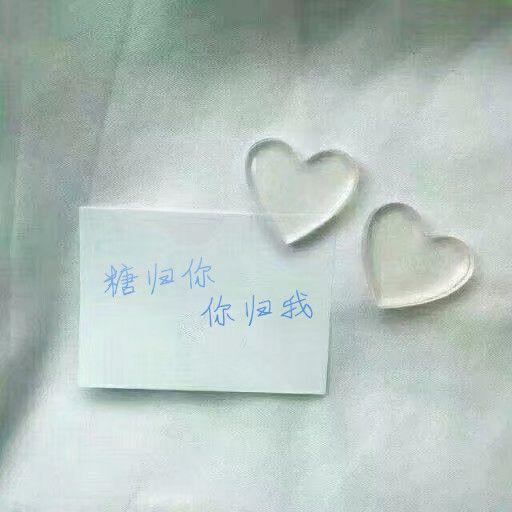 糖归你
你归我